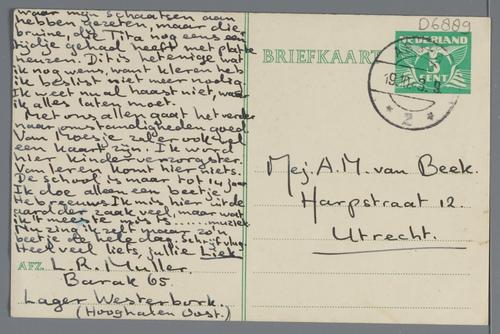 waar mijn schaatsen aan
hebben gezeten, maar die
bruine, die Tita nog eens een
tijdje gehad heeft met platte
neuzen. Dit is het enige wat
ik nog wens, want kleren heb
ik beslist niet meer nodig.
Ik weet nu al haast niet, waar
ik alles laten moet.
Met ons allen gaat het verder
naar omstandigheden goed.
Van Loesje zal er ook wel
een kaart zijn. Ik word
hier kinderverzorgster.
Van leren komt hier niets.
De school is maar tot 14 jaar
Ik doe alleen een beetje
Hebreeuws. Ik mis hier uit de
aard der zaak veel, maar wat
ik 't meeste mis is ...... muziek
Nu zing ik zelf maar zo'n
beetje de hele dag. Schrijf vlug.
Heel veel liefs, jullie Liek
AFZ. L.R. Muller.
Barak 65.
Lager Westerbork.
(Hooghalen Oost.)
D6889
BRIEFKAART
NEDERLAND
5
CENT
Mej. A.M. van Beek.
Harpstraat 12.
Utrecht.